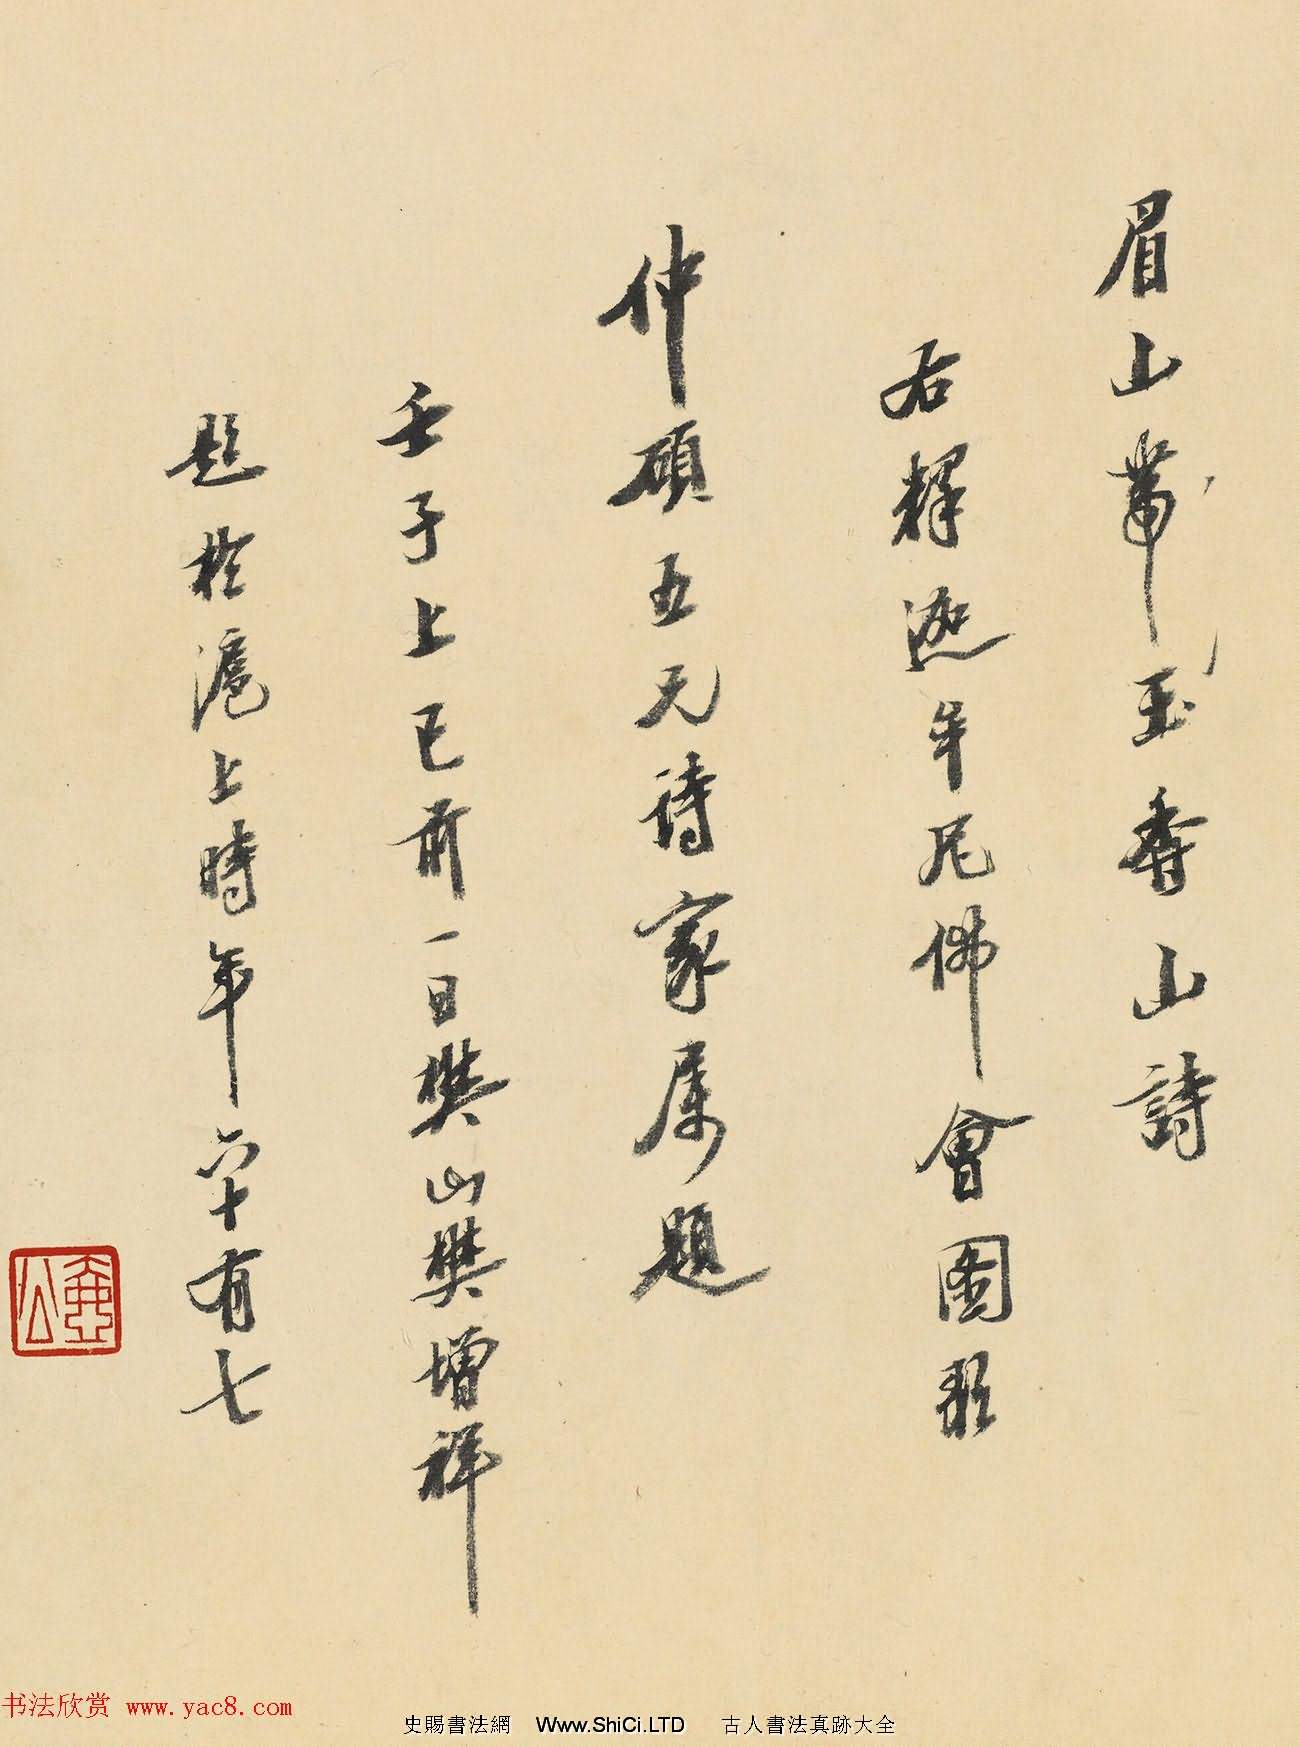 眉山帶玉奪山詩
右釋迦牟尼佛會圖歌
仲碩五兄詩家属題
壬子上巳前一日樊山樊增祥
題於滬上時年六十有七
书法欣赏 www.yac8.com
史賜書法網 Www.ShiCi.LTD 古人書法真跡大全